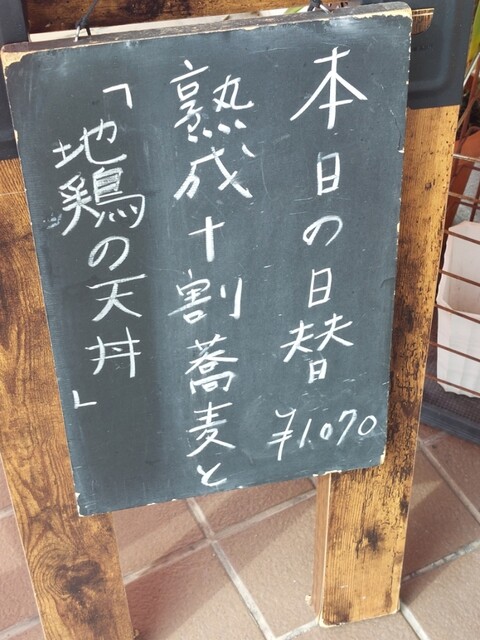 本日の日替 ¥1.070
熟成十割蕎麦と
「地鶏の天丼」